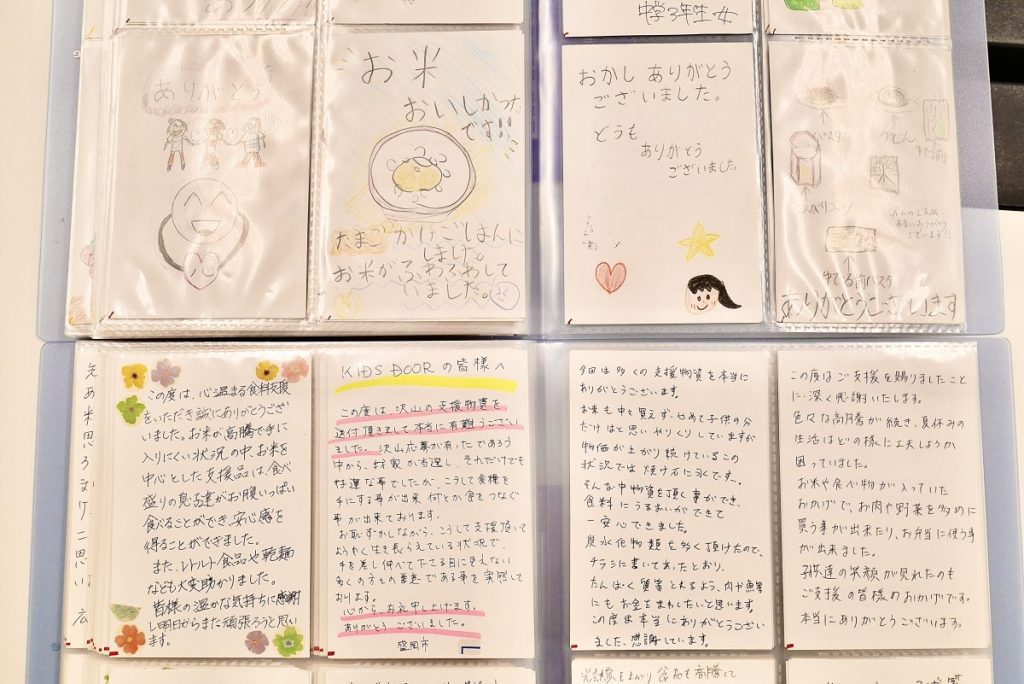 中学3年生女
ありがとう
お米
おいしかった
です!!
たまごかけごはんに
しました
お米がふわふわして
いました。
おかし ありがとう
ございました。
どうも
ありがとう
ございました。
パスタ
うどん
ゆでる前パスタ
ありがとうございます
この度は、心温まる食料支援
をいただき誠にありがとうござ
いました。お米が高騰で手に
入りにくい状況の中、お米を
中心とした支援品は、食べ
盛りの息子達がお腹いっぱい
食べることができ、安心感を
得ることができました。
また、レトルト食品や乾麺
なども大変助かりました。
皆様の温かな気持ちに感謝
し明日からまた頑張ろうと思い
ます。
KIDS DOORの皆様へ
この度は、沢山の支援物資を
送付頂きまして本当に有難うござい
ました。沢山応募が有ったであろう
中から、我家が当選し、それだけでも
幸運な事でしたが、こうして食糧を
手にする事が出来 何とか食をつなぐ
事が出来ております。
お恥ずかしながら、こうして支援頂いて
ようやく生き長らえている状況で、
手を差し伸べて下さる目に見えない
多くの方々の善意である事を実感して
おります。
心からお礼申し上げます。
ありがとうございました。
盛岡市
今回は多くの支援物資を本当に
ありがとうございます。
お米も中々買えず、せめて子供の分
だけはと思いやりくりしていますが
物価が上がり続けているこの
状況では焼け石に水です。
そんな中物資を頂く事ができ、
食料にうるおいがでて
一安心できました。
炭水化物類を多く頂けたので、
チラシに書いてあったとおり、
たんぱく質等とれるよう、肉や魚等
にもお金をまわしたいと思います。
この度は本当にありがとうござい
ました。感謝しています。
この度はご支援を賜りましたこと
に、深く感謝いたします。
色々な高騰が続き、夏休みの
生活はどの様に工夫しようか
困っていました。
お米や食べ物が入っていた
おかげで、お肉や野菜を多めに
買う事が出来たり、お弁当に使う事
が出来ました。
子供達の笑顔が見れたのも
ご支援の皆様のおかげです。
本当にありがとうございます。